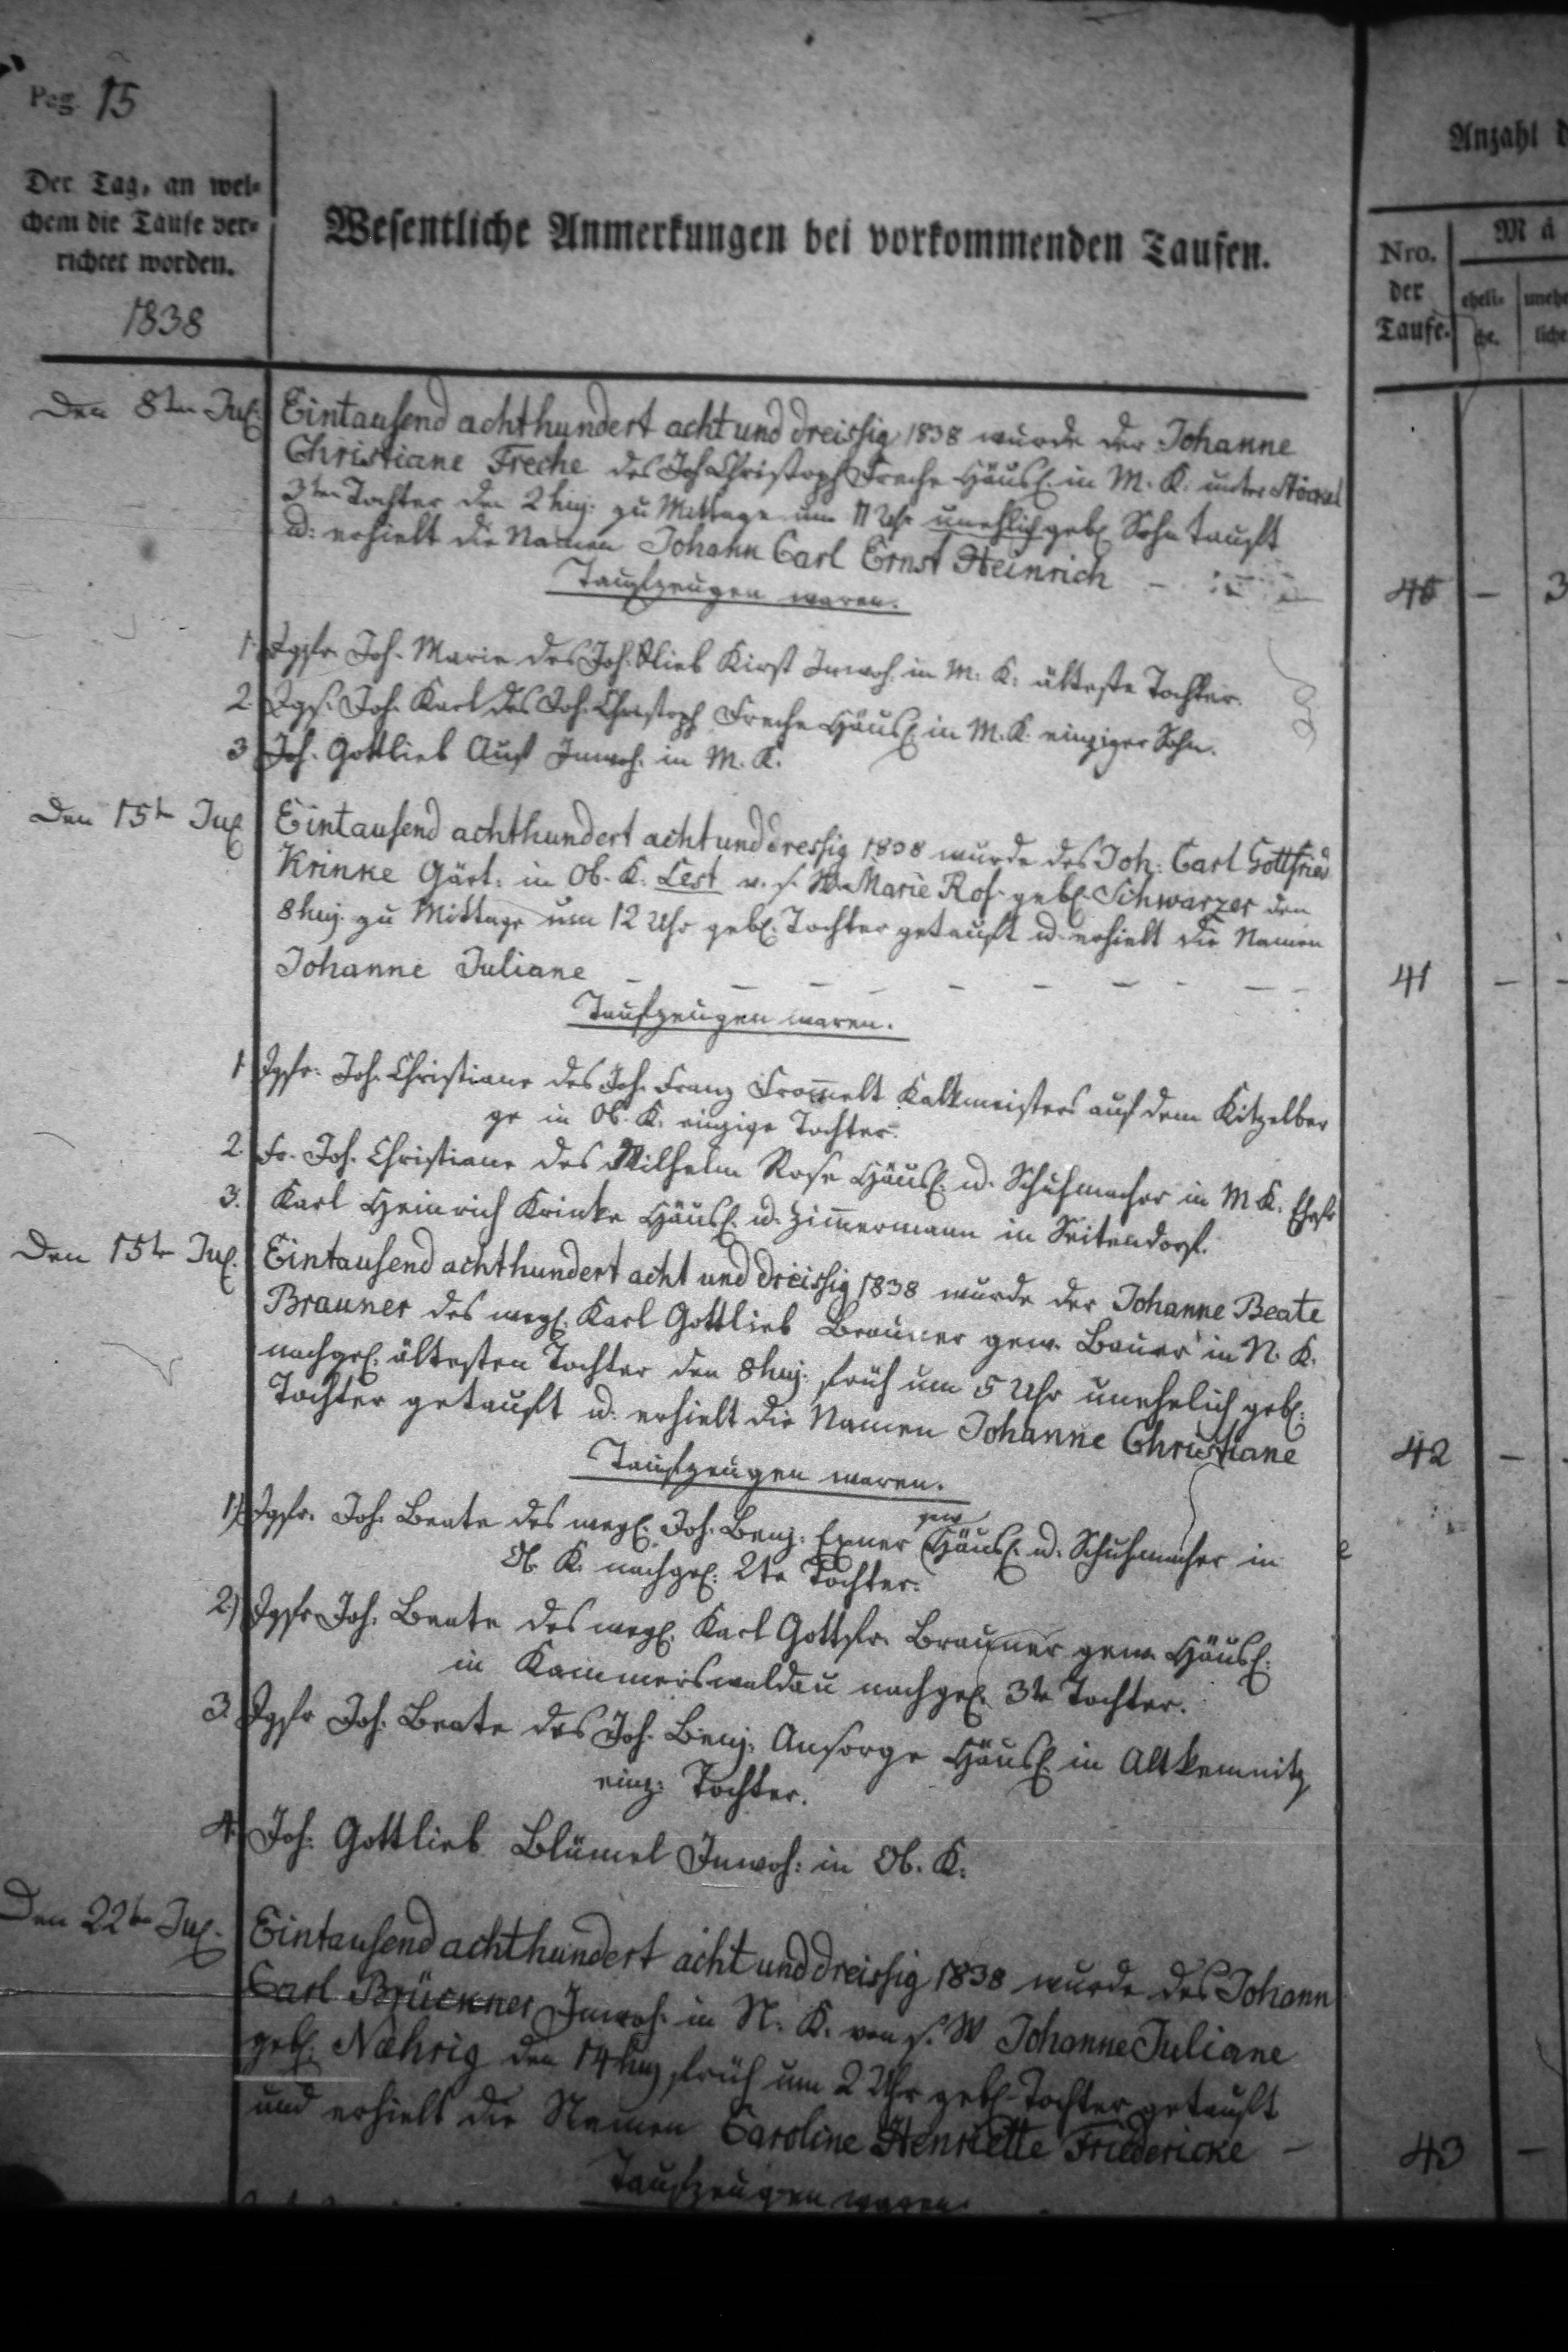 Pag. 15
Der Tag, an wel-
chem die Taufe ver-
richtet worden.
1838
Wesentliche Anmerkungen bei vorkommenden Taufen.
Anzahl d
Nro.
der
Taufe.
Mä
eheli-
che.
unehe
liche
Den 8ten Jul:
Eintausend achthundert acht und dreissig 1838 wurde der Johanne
Christiane Freche des Joh. Christoph Freche Häusl. in M. K. unter
3ten Tochter den 2 huj: zu Mittage um 11 Uhr unehlich geb. Sohn tauft
u: erhielt die Namen Johann Carl Ernst Heinrich –
40 – 3
Taufzeugen waren.
1. Jgfr. Joh. Marie des Joh. Glieb Kirst Inwoh. in M. K. älteste Tochter.
2. Jgs. Joh. Karl des Joh. Christoph Freche Häusl. in M. K. einziger Sohn.
3 Joh. Gottlieb Aust Inwoh. in M. K.
Den 15t Jul
Eintausend achthundert acht und dressig 1838 wurde des Joh: Carl Gottfried
Krinke Gärt: in Ob. K. Lest v. s. W. Marie Ros. geb. Schwarzer den
8 huj. zu Mittage um 12 Uhr geb. Tochter getauft u. erhielt die Namen
Johanne Juliane – – – – – – – – –
41 – –
Taufzeugen waren.
1. Jgfr. Joh. Christiane des Joh. Franz Fromelt Kalkmeisters auf dem Kitzelber
ge in Ob. K. einzige Tochter.
2. Fr. Joh. Christiane des Wilhelm Rose Häusl. u. Schuhmacher in M K. Ehefr
3. Karl Heinrich Krinke Häusl. u. Zimermann in Seitendorf.
Den 15te Jul.
Eintausend achthundert acht und dreissig 1838 wurde der Johanne Beate
Brauner des wegl. Karl Gottlieb Brauner gew. Bauer in N. K.
nachgel. ältesten Tochter den 8 huj. früh um 5 Uhr unehelich geb.
Tochter getauft u. erhielt die Namen Johanne Christiane
42 –
Taufzeugen waren.
1.) Jgfr. Joh. Beate des wegl. Joh. Benj. Exner gew Häusl. u. Schuhmacher in
Ob. K. nachgel. 2te Tochter.
2.) Jgfr Joh. Beate des wegl. Karl Gottfr. Brauner gew. Häusl.
in Kammerswaldau nachgel. 3te Tochter.
3. Jgfr Joh. Beate des Joh. Benj. Ansorge Häusl. in Altkemnitz
einz. Tochter.
4. Joh. Gottlieb Blümel Inwoh: in Ob. K.
Den 22te Jul.
Eintausend achthundert acht und dreissig 1838 wurde des Johann
Carl Brückner Inwoh. in N. K. von s. W Johanne Juliane
geb. Næhrig den 14 huj früh um 2 Uhr geb. Tochter getauft
und erhielt die Namen Caroline Henriette Friedericke –
43 –
Taufzeugen waren.